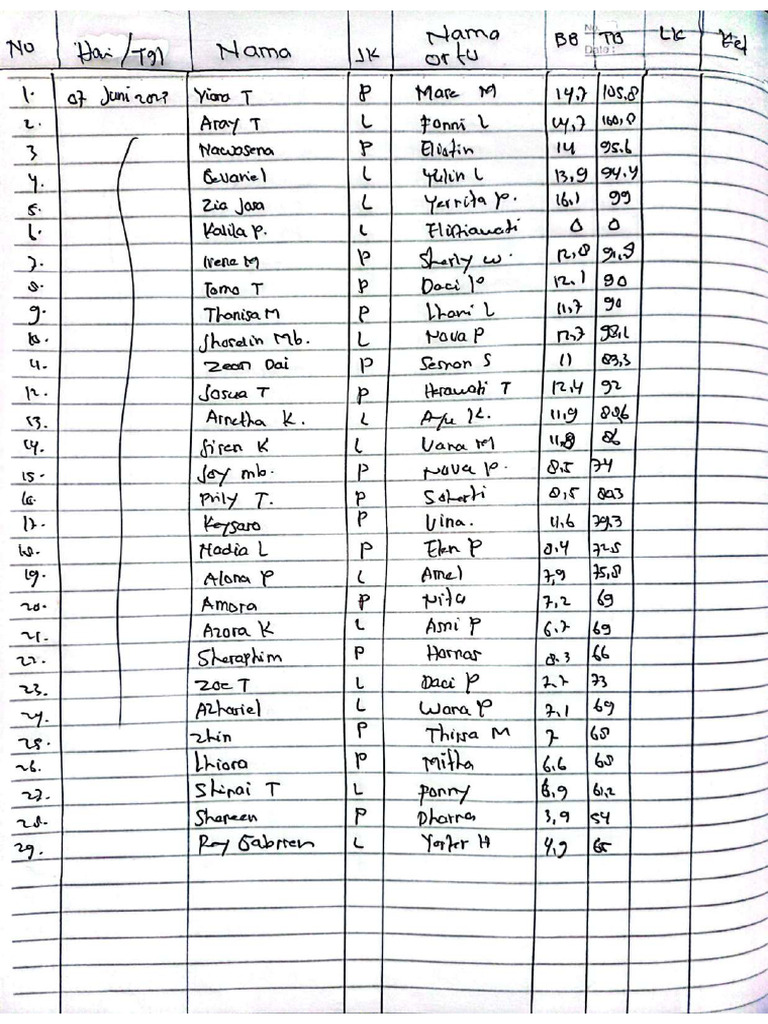 No Hari/Tgl Nama JK Nama ortu BB TB LK Ket
No.
Date:
1. 07 Juni 2023 Yiora T P Mare M 14,7 105,8
2. Aray T L Fonni L 14,7 100,8
3 Nawasena P Elistin 14 95.6
4. Gevariel L Yulin L 13,9 94,4
5. Zia Jasa L Yerrita P. 16,1 99
6. Kalila P. L Elistiawati 0 0
7. Irena M P Sherly W. 12,8 91,8
8. Tomo T P Daci P 12,1 90
9. Thanisa M P Lhani L 11,7 90
10. Jhoralin Mb. L Nova P 12,7 98,1
11. Zean Dai P Sesnon S 11 83,3
12. Josua T P Herawati T 12,4 92
13. Arnetha K. L Ayu K. 11,9
14. Siren K L Vana M 11,8 86
15. Joy mb. P Nova P. 8.5 74
16. Prily T. P 8,5 80.3
17. Keysaro P Vina. 11,6 79,3
18. Nadia L P Elen P 8.4 72.5
19. Alona P L Amel 7,9 75,8
20. Amora P Nita 7,2 69
21. Azora K L Asni P 6.7 69
22. Sheraphim P Harnas 8.3 66
23. Zoe T L Daci P 7.7 73
24. Azhariel L Wara P 7,1 69
25. Zhin P Thirsa M 7 68
26. Lhiora P Mitha 6,6 68
27. Shinai T L Ponny 6,9 61,2
28. Shareen P Dharna 3,9 54
29. Roy L Yester H 4,9 65